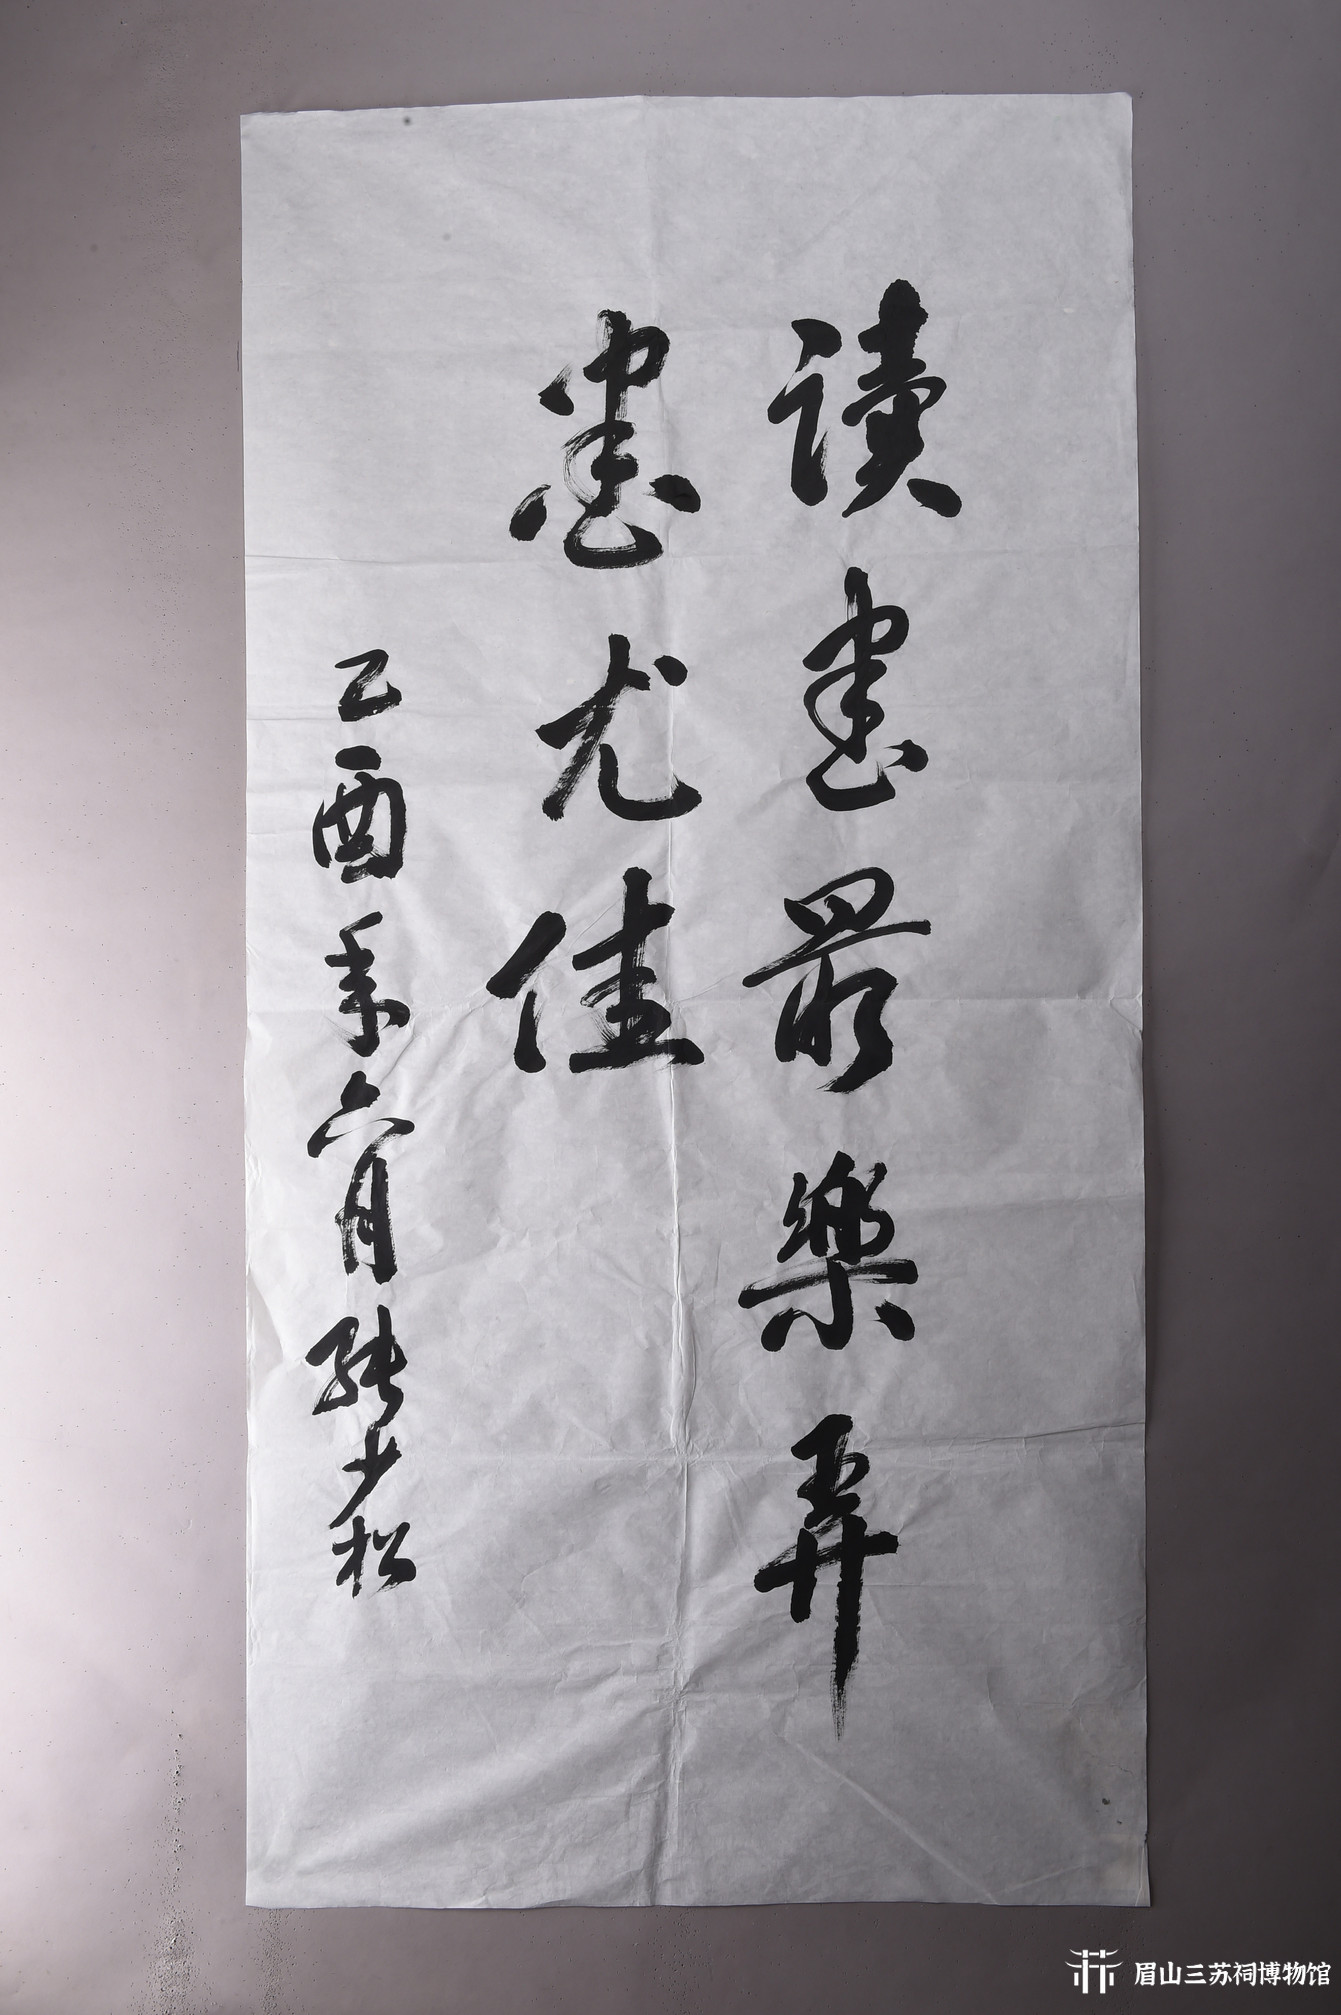 读书最樂弄
墨尤佳
乙酉年六月张少松
眉山三苏祠博物馆